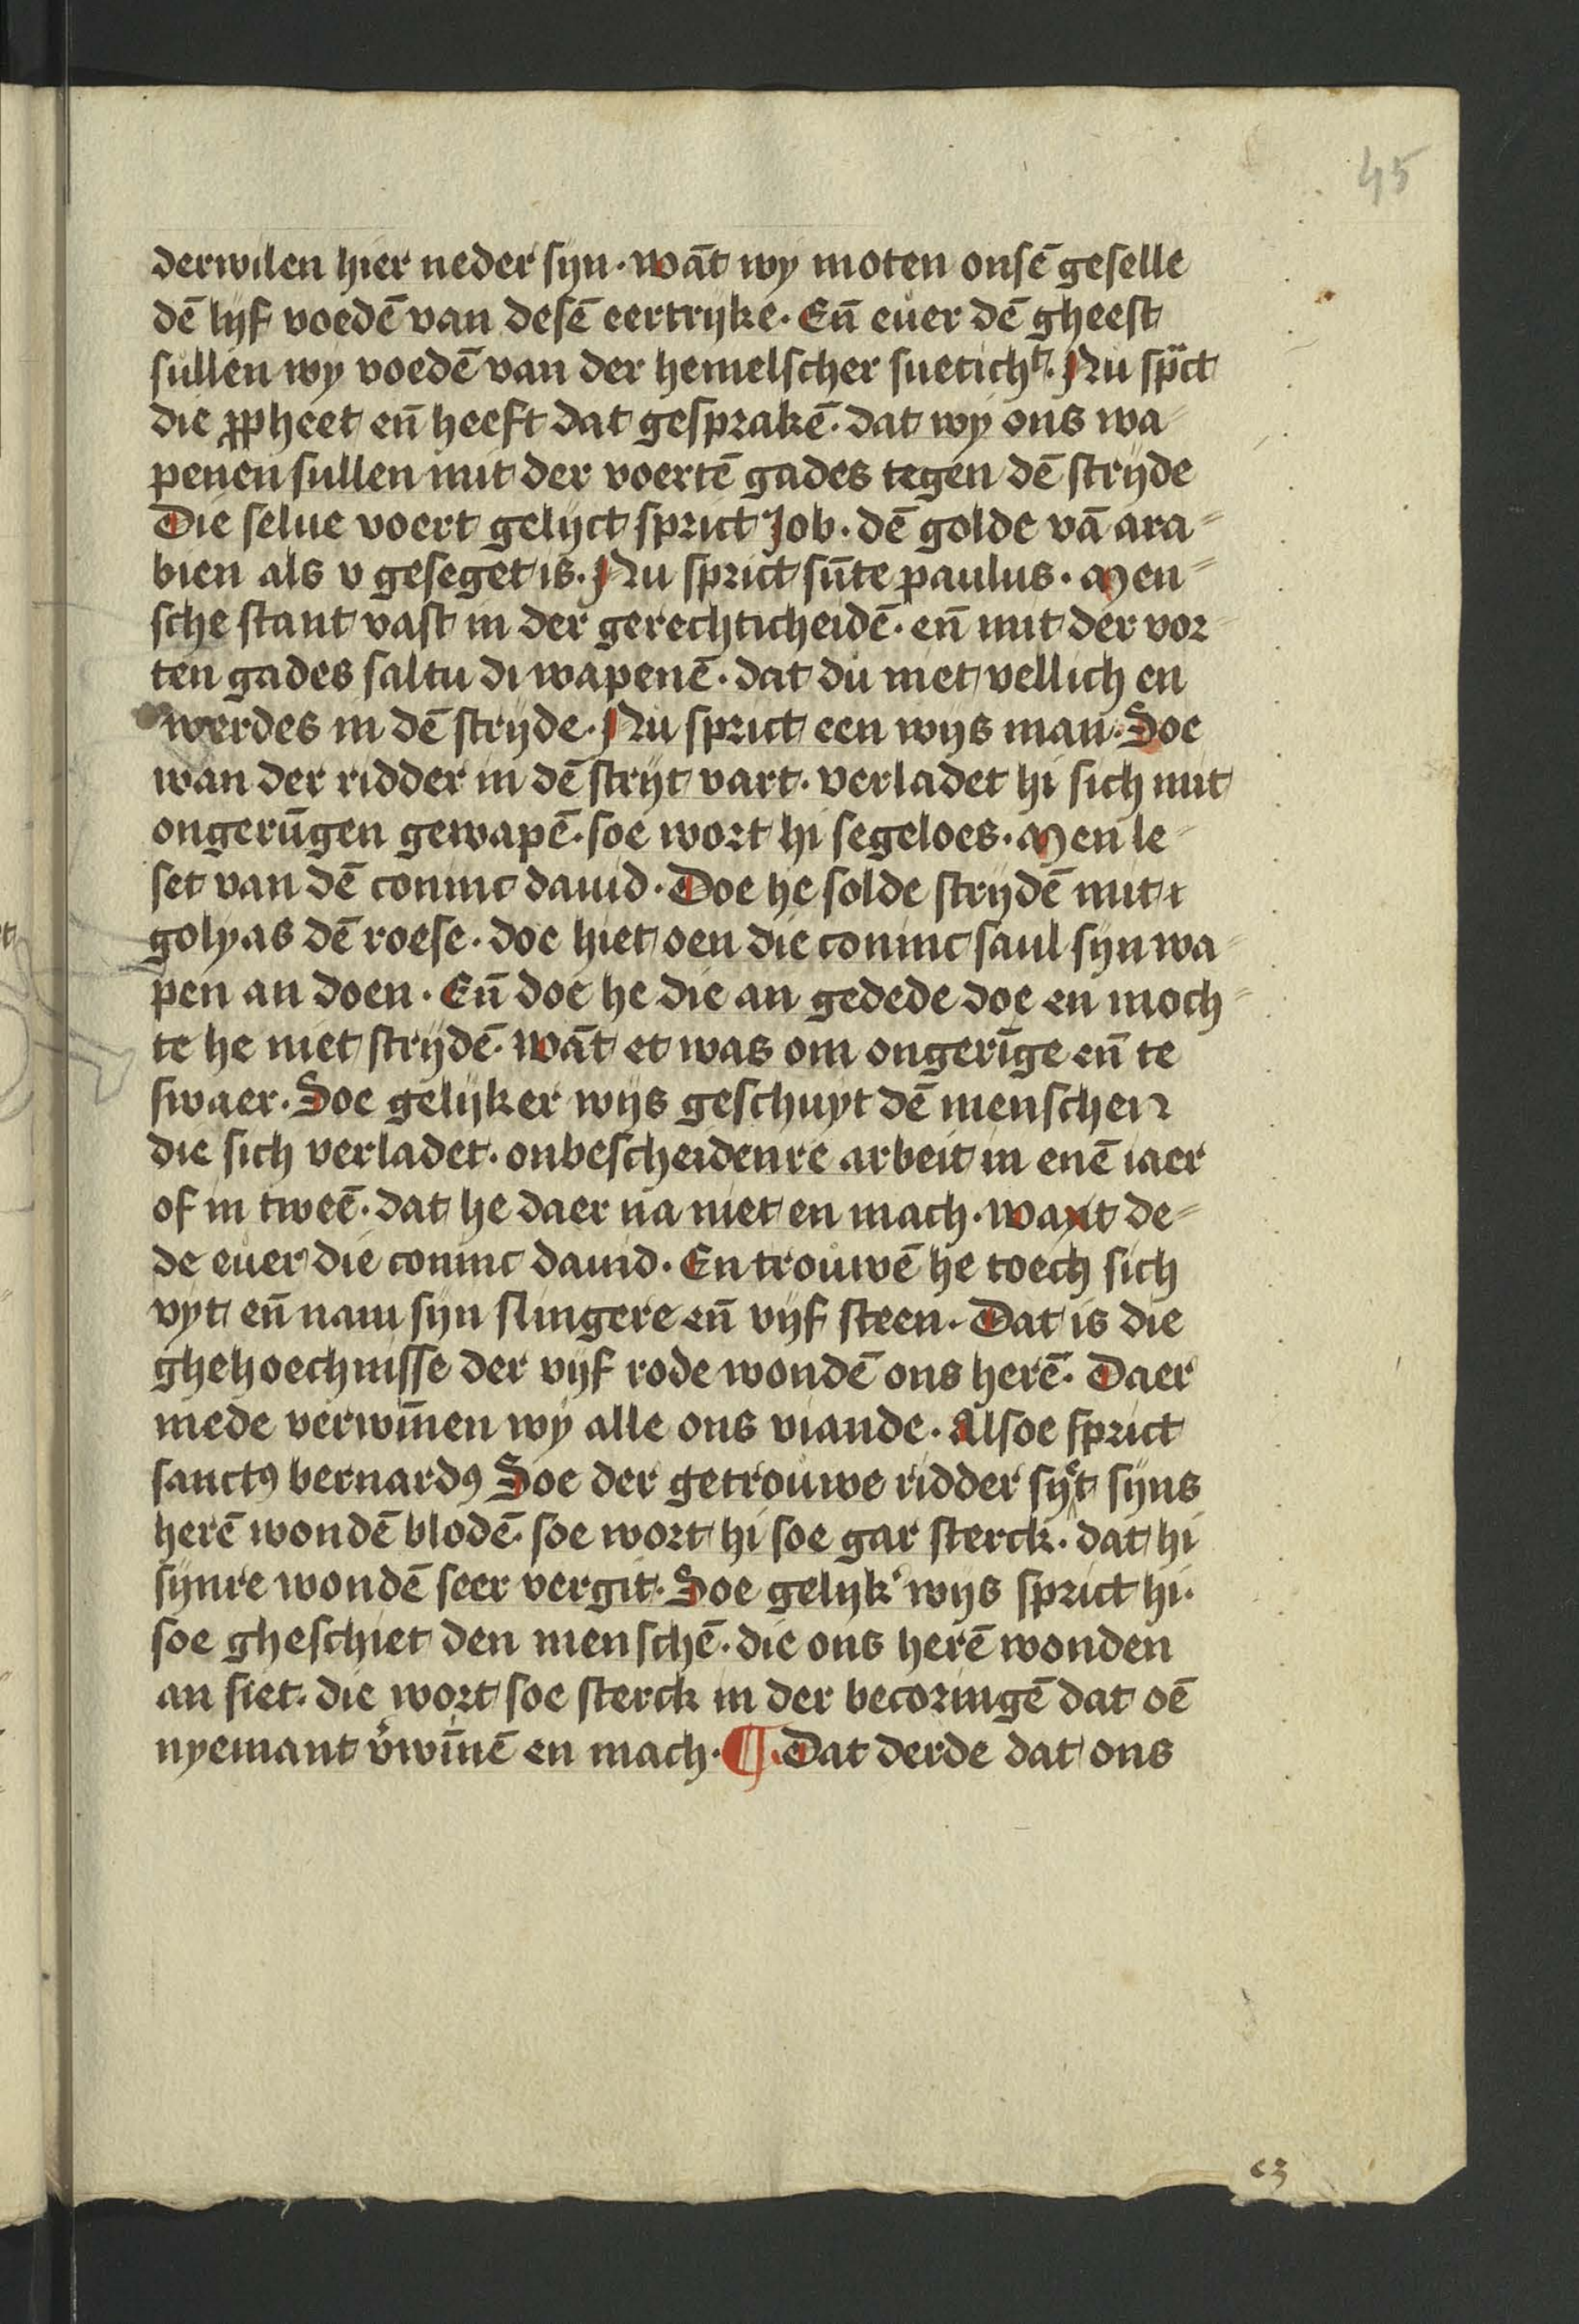 45
derwilen hier neder sijn · want̄ wy moten onsē geselle
dē lijf voedē van desē eertrijke · Eñ euer dē gheest
sullen wy voedē van der hemelscher sueticht͛ · Nu spͣct
die ꝓpheet eñ heeft dat gesprakē · dat wy ons wa⸗
penen sullen mit der voertē gades tegen dē strijde
Die selue voert gelijct sprict Job · dē golde vā ara⸗
bien als v geseget is · Nu sprict sūte paulus · Men⸗
sche stant vast in der gerechticheidē · eñ mit der vor⸗
ten gades saltu di wapenē · dat du niet vellich en
werdes in dē strijde · Nu sprict een wijs man · Soe
wan der ridder in dē strijt vart · verladet hi sich mit
ongerūgen gewapē · soe wort hi segeloes · Men le⸗
set van dē coninc dauid · Doe he solde strijdē mit
golyas dē roese · doe hiet oen die coninc saul sijn wa⸗
pen an doen · Eñ doe he die an gedede doe en moch⸗
te he niet strijdē · wāt et was om ongerīge eñ te
swaer · Soe gelijker wijs geschuyt dē menschen
die sich verladet · onbescheidenre arbeit in enē iaer
of in tweē · dat he daer na niet en mach · waxt de⸗
de euer die coninc dauid · En trouwē he toech sich
vyt eñ nam sijn slingere eñ vijf steen · Dat is die
ghehoechnisse der vijf rode wondē ons herē · Daer
mede verwīnen wy alle ons viande · Alsoe sprict
sanctꝰ bernardꝰ Soe der getrouwe ridder syet sijns
herē wondē blodē · soe wort hi soe gar sterck · dat hi
sijnre wondē seer vergit · Soe gelijk͛ wijs sprict hi ·
soe gheschiet den menschē · die ons herē wonden
an siet · die wort soe sterck in der becoringē dat oē
nyemant v͛wīnē en mach · ¶ · Dat derde dat ons